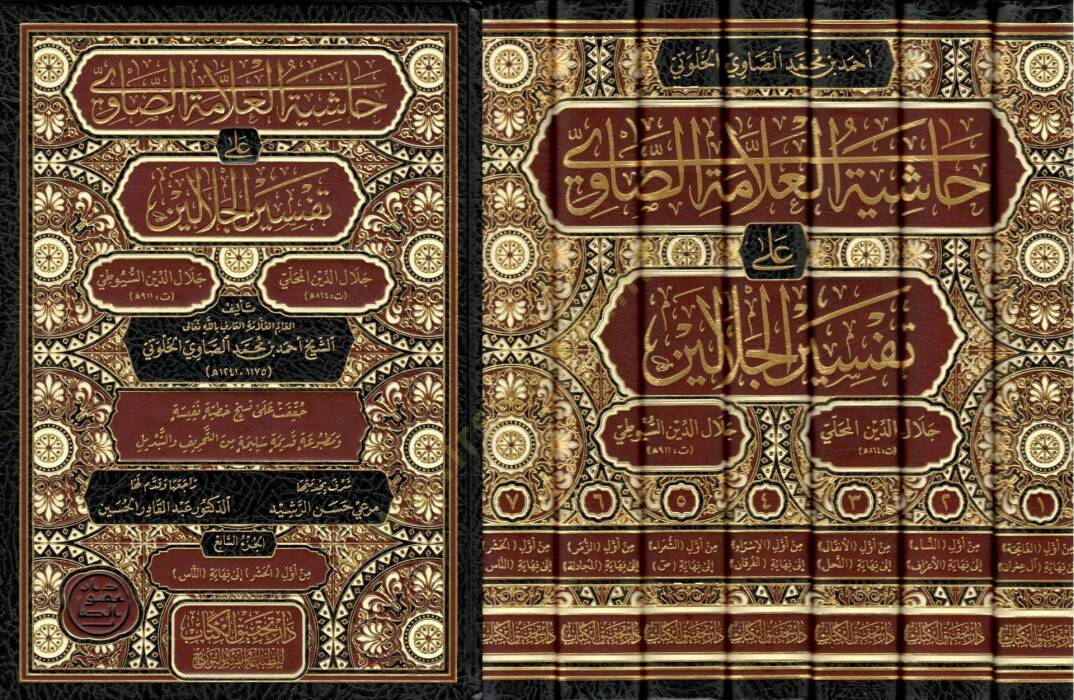 حاشية العلامة الصاوي
على
تفسير الجلالين
جلال الدين المحلي
(ت: ٨٦٤ هـ)
جلال الدين السيوطي
(ت: ٩١١ هـ)
تأليف
العالم العلامة العارف بالله تعالى
الشيخ أحمد بن محمد الصاوي الخلوتي
(١١٧٥ - ١٢٤١ هـ)
حققت على نسخ خطية نفيسة
ومطبوعة قديمة سليمة من التحريف والتبديل
مرعي حسن الرشيد
راجعها وقدم لها
الدكتور عبد القادر الحسين
الجزء السابع
من أول (الحشر) إلى نهاية (الناس)
دار تحقيق الكتاب
للطباعة والنشر والتوزيع
أحمد بن محمد الصاوي الخلوتي
حاشية العلامة الصاوي
على
تفسير الجلالين
جلال الدين المحلي
(ت: ٨٦٤ هـ)
جلال الدين السيوطي
(ت: ٩١١ هـ)
١ ٢ ٣ ٤ ٥ ٦ ٧
من أول (الفاتحة)
إلى نهاية (آل عمران)
من أول (النساء)
إلى نهاية (الأعراف)
من أول (الأنفال)
إلى نهاية (النحل)
من أول (الإسراء)
إلى نهاية (الفرقان)
من أول (الشعراء)
إلى نهاية (ص)
من أول (الزمر)
إلى نهاية (المجادلة)
من أول (الحشر)
إلى نهاية (الناس)
دار تحقيق الكتاب
دار تحقيق الكتاب
دار تحقيق الكتاب
دار تحقيق الكتاب
دار تحقيق الكتاب
دار تحقيق الكتاب
دار تحقيق الكتاب